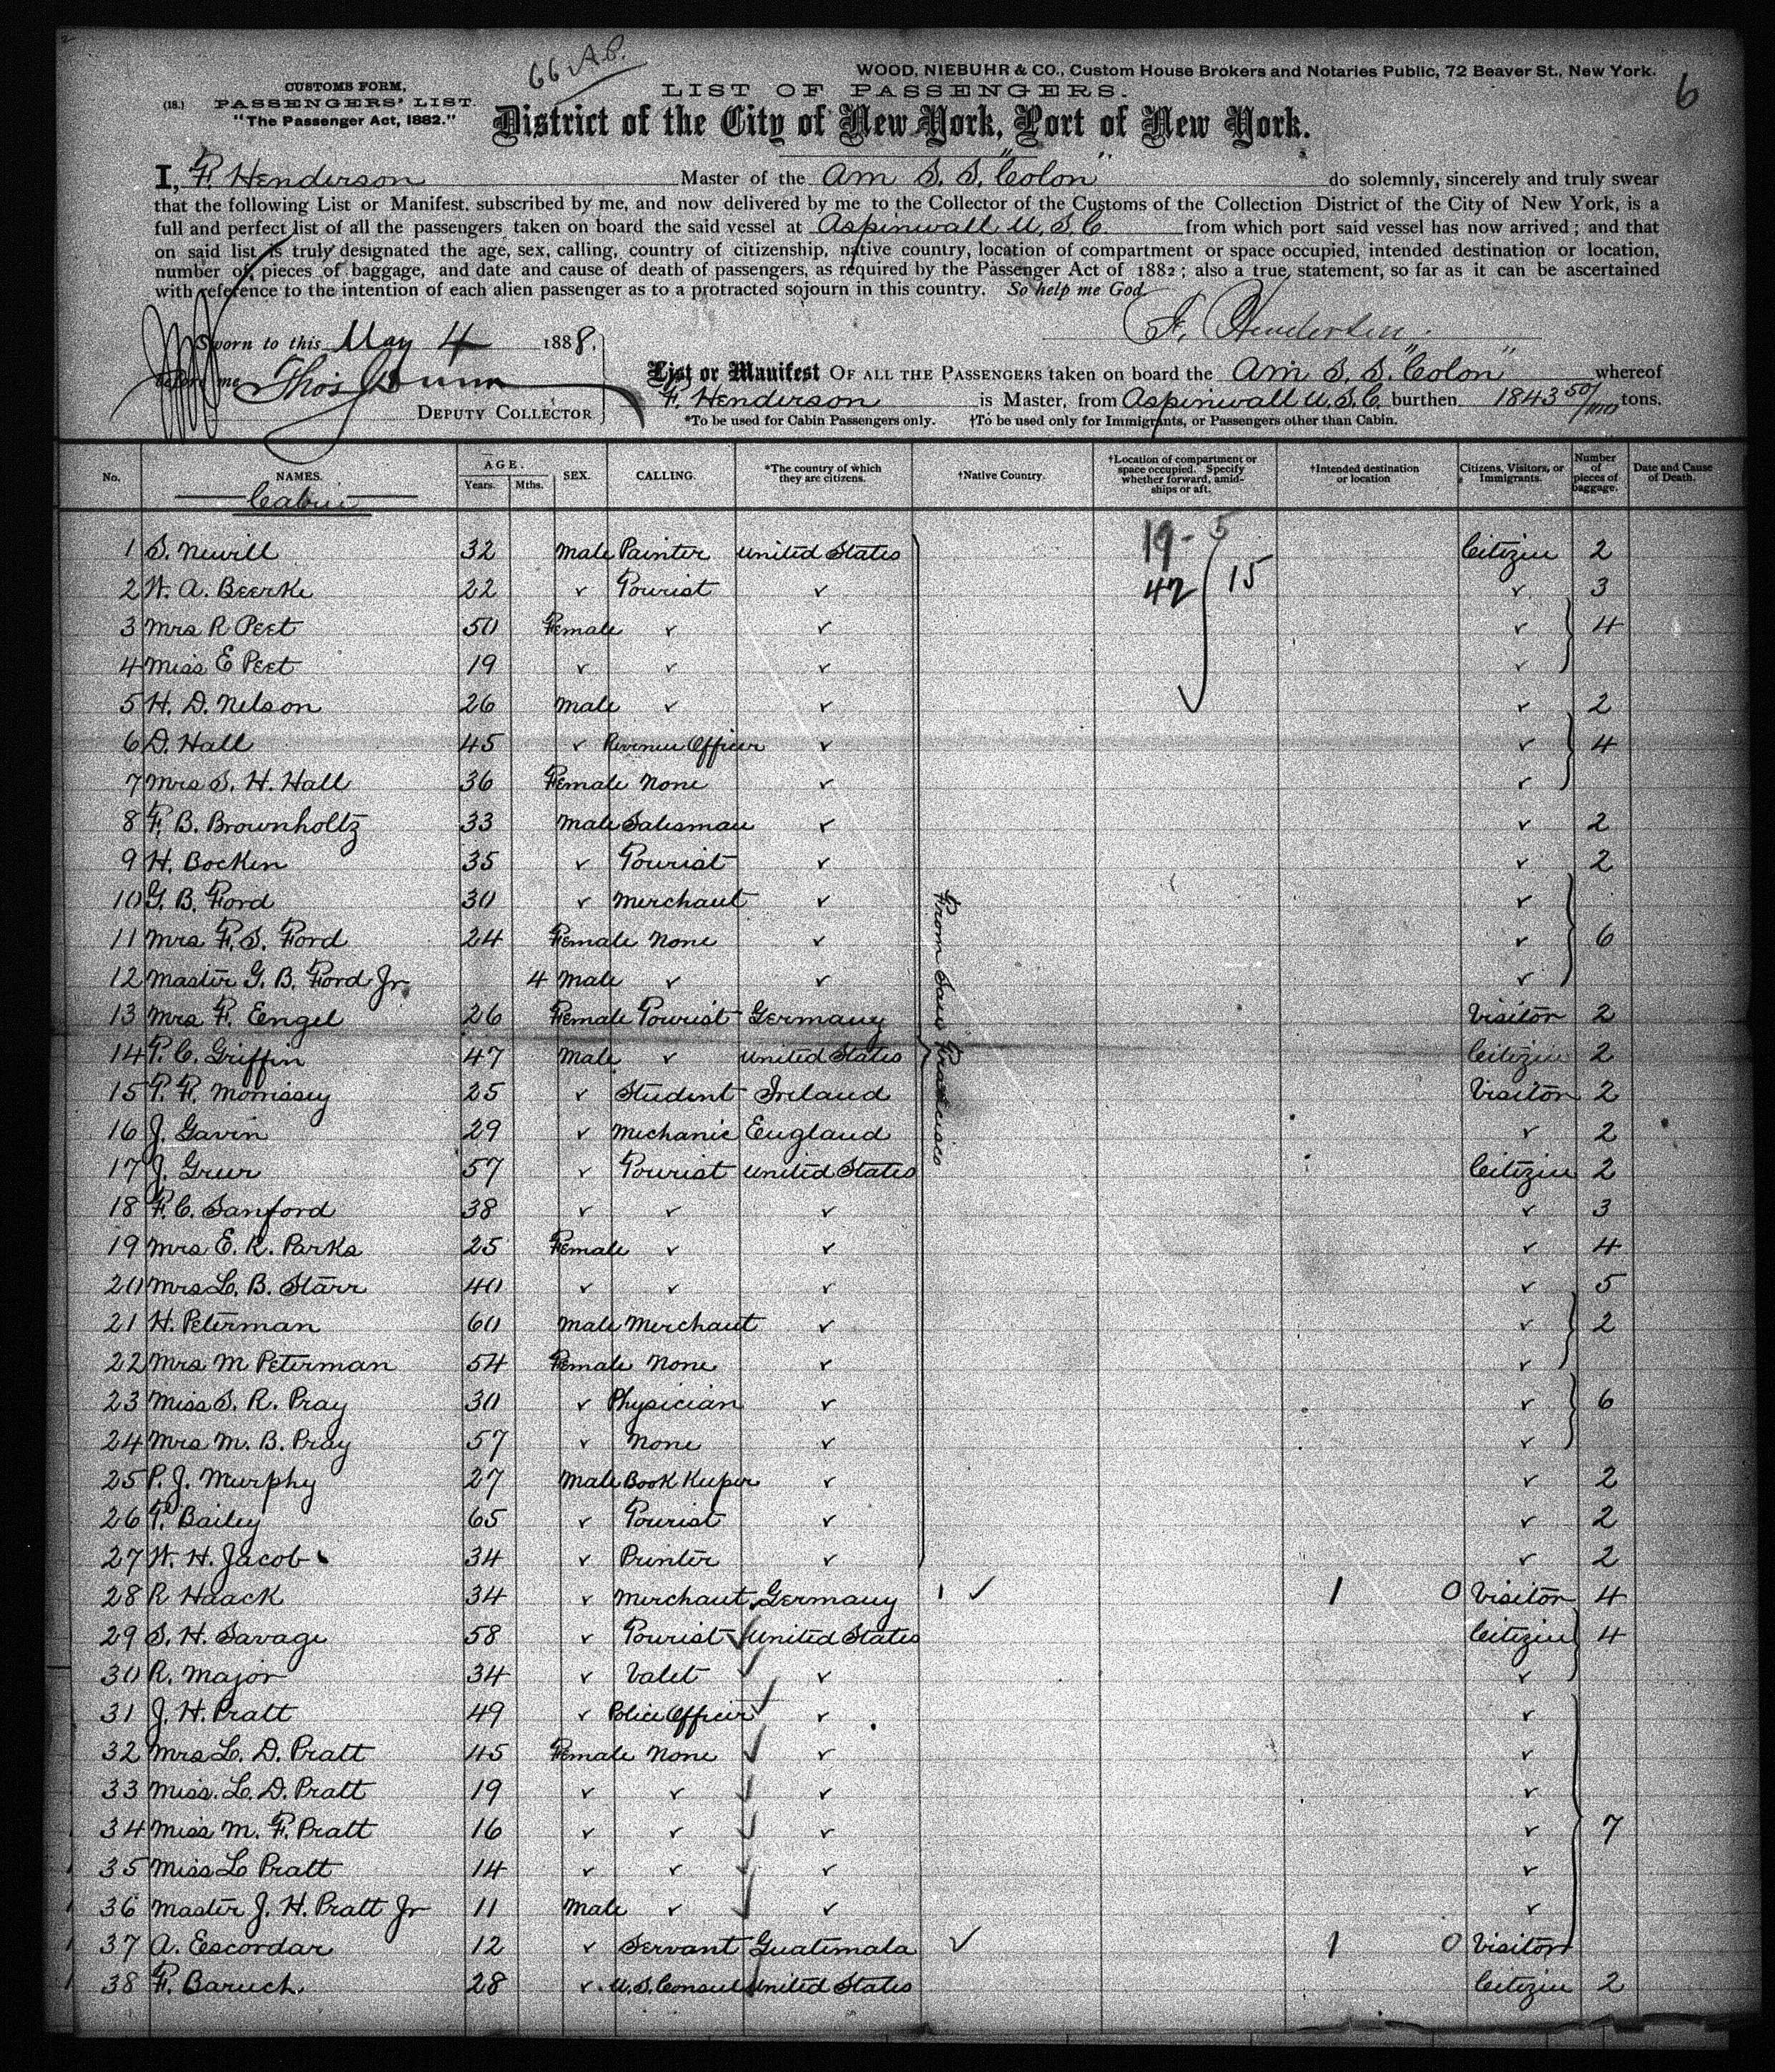 66 A.P.
WOOD, NIEBUHR & CO., Custom House Brokers and Notaries Public, 72 Beaver St., New York.
6
CUSTOMS FORM,
(18.) PASSENGERS' LIST.
"The Passenger Act, 1882."
LIST OF PASSENGERS.
District of the City of New York, Port of New York.
I, F. Henderson Master of the Am S. S. "Colon" do solemnly, sincerely and truly swear
that the following List or Manifest, subscribed by me, and now delivered by me to the Collector of the Customs of the Collection District of the City of New York, is a
full and perfect list of all the passengers taken on board the said vessel at Aspinwall U. S. C. from which port said vessel has now arrived; and that
on said list is truly designated the age, sex, calling, country of citizenship, native country, location of compartment or space occupied, intended destination or location,
number of pieces of baggage, and date and cause of death of passengers, as required by the Passenger Act of 1882; also a true statement, so far as it can be ascertained
with reference to the intention of each alien passenger as to a protracted sojourn in this country. So help me God.
F. Henderson.
Sworn to this May 4 1888.
before me Thos Dunn
DEPUTY COLLECTOR
List or Manifest OF ALL THE PASSENGERS taken on board the Am S. S. "Colon" whereof
F. Henderson is Master, from Aspinwall U. S. C. burthen 1843 50/100 tons.
*To be used for Cabin Passengers only. †To be used only for Immigrants, or Passengers other than Cabin.
No. NAMES. AGE. Years. Mths. SEX. CALLING. *The country of which they are citizens. †Native Country. †Location of compartment or space occupied. Specify whether forward, amidships or aft. †Intended destination or location Citizens, Visitors, or Immigrants. Number of pieces of baggage. Date and Cause of Death.
Cabin
19 - 5
42 15
From San Francisco
1 S. Newill 32 Male Painter United States Citizen 2
2 W. A. Beerke 22 ✓ Tourist ✓ ✓ 3
3 Mrs R Peet 50 Female ✓ ✓ ✓ 4
4 Miss E Peet 19 ✓ ✓ ✓ ✓
5 H. D. Nelson 26 Male ✓ ✓ ✓ 2
6 D. Hall 45 ✓ Revenue Officer ✓ ✓ 4
7 Mrs S. H. Hall 36 Female None ✓ ✓
8 F. B. Brownholtz 33 Male Salesman ✓ ✓ 2
9 H. Bocken 35 ✓ Tourist ✓ ✓ 2
10 G. B. Ford 30 ✓ Merchant ✓ ✓
11 Mrs F. S. Ford 24 Female None ✓ ✓ 6
12 Master G. B. Ford Jr 4 Male ✓ ✓ ✓
13 Mrs F. Engel 26 Female Tourist Germany Visitor 2
14 T. C. Griffin 47 Male ✓ United States Citizen 2
15 T. F. Morrissey 25 ✓ Student Ireland Visitor 2
16 J. Gavin 29 ✓ Mechanic England ✓ 2
17 J. Grur 57 ✓ Tourist United States Citizen 2
18 F. C. Sanford 38 ✓ ✓ ✓ ✓ 3
19 Mrs E. K. Parks 25 Female ✓ ✓ ✓ 4
20 Mrs L. B. Starr 40 ✓ ✓ ✓ ✓ 5
21 H. Peterman 60 Male Merchant ✓ ✓ 2
22 Mrs M Peterman 54 Female None ✓ ✓
23 Miss S. R. Pray 30 ✓ Physician ✓ ✓ 6
24 Mrs M. B. Pray 57 ✓ None ✓ ✓
25 P. J. Murphy 27 Male Book Keeper ✓ ✓ 2
26 T. Bailey 65 ✓ Tourist ✓ ✓ 2
27 W. H. Jacob 34 ✓ Printer ✓ ✓ 2
28 R Haack 34 ✓ Merchant Germany ✓ 1 0 Visitor 4
29 S. H. Savage 58 ✓ Tourist ✓ United States Citizen 4
30 R. Major 34 ✓ Valet ✓ ✓ ✓
31 J. H. Pratt 49 ✓ Police Officer ✓ ✓ ✓
32 Mrs L. D. Pratt 45 Female None ✓ ✓ ✓
33 Miss. L. D. Pratt 19 ✓ ✓ ✓ ✓ ✓
34 Miss M. F. Pratt 16 ✓ ✓ ✓ ✓ ✓ 7
35 Miss L Pratt 14 ✓ ✓ ✓ ✓ ✓
36 Master J. H. Pratt Jr 11 Male ✓ ✓ ✓ ✓
37 A. Escordar 12 ✓ Servant Guatemala ✓ 1 0 Visitor
38 F. Baruch 28 ✓ U. S. Consul United States Citizen 2